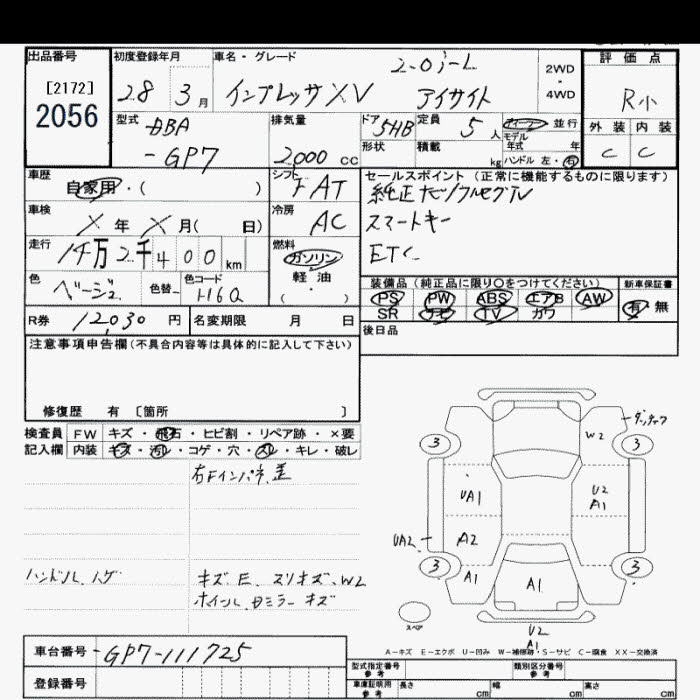 出品番号
[2172]
2056
初度登録年月
28 3月
車名・グレード
インプレッサXV
2.0i-L
アイサイト
2WD
・
4WD
評価点
R小
外装 内装
C C
型式
DBA
-GP7
排気量
2000 cc
ドア 5HB
形状
定員 5 人
積載 kg
ディーラー 並行
モデル
年式 年
ハンドル 左・右
車歴
自家用・( )
シフト
FAT
セールスポイント (正常に機能するものに限ります)
純正ナビ/フルセグTV
スマートキー
ETC
車検
X 年 X 月( 日)
冷房
AC
走行
14万2千400 km
燃料
ガソリン
軽・油
( ・ )
色
ベージュ
色替
色コード
H6Q
装備品 (純正品に限り○をつけてください)
PS PW ABS エアB AW
SR ナビ TV カワ
新車保証書
有 無
R券 12030 円
名変期限 月 日
後日品
注意事項申告欄(不具合内容等は具体的に記入して下さい)
修復歴 有 〔箇所 〕
検査員
記入欄
FW キズ・飛石・ヒビ割・リペア跡・×要
内装 キズ・汚れ・コゲ・穴・スレ・キレ・破レ
右Fインパネ、歪
ハンドル、ハゲ
キズ、E、スリキズ、W2
ホイール、Dミラー キズ
3 3
W2
UA1
U2
A1
UA2
A2
3 3
A1
A1
スペア
U2
A1
A-キズ E-エクボ U-凹み W-補修跡・波 S-サビ C-腐食 XX-交換済
車台番号 -GP7-111725
登録番号
型式指定番号
参考
類別区分番号
参考
車庫証明用
参考
長さ cm 幅 cm 高さ cm